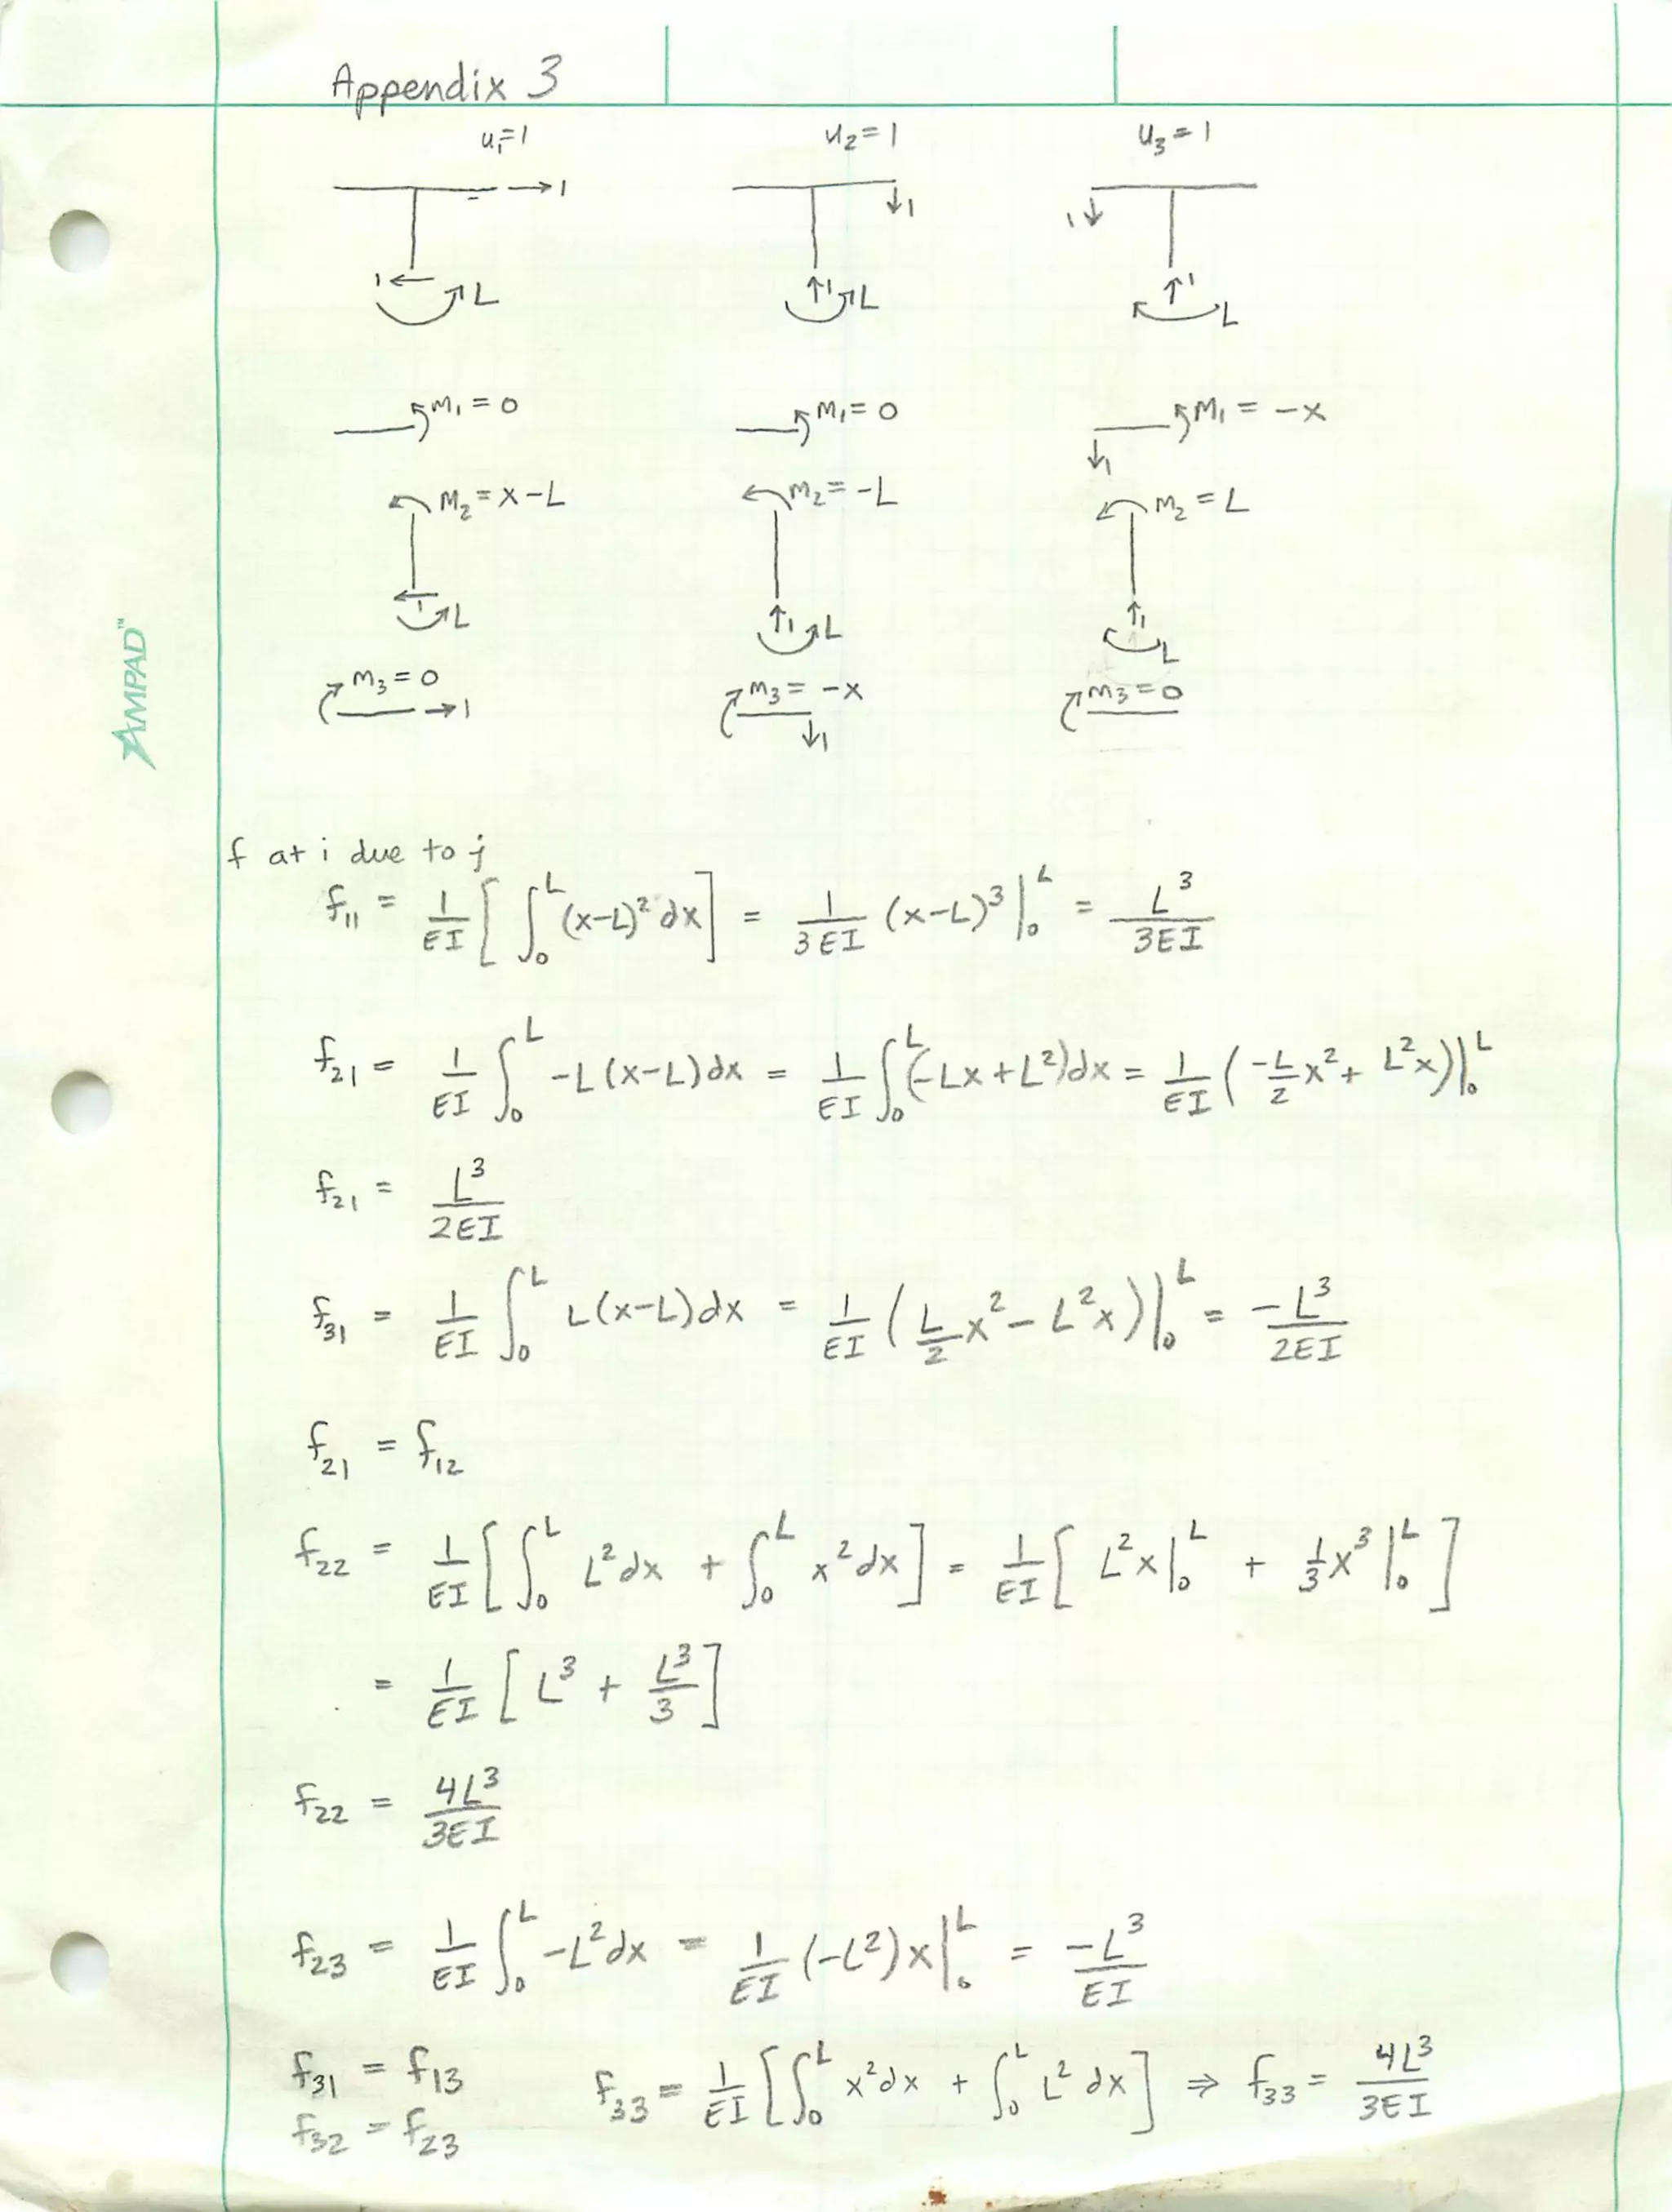 Appendix 3
u₁=1 u₂=1 u₃=1
→1 ↓1 1↓
1← L ↑1 L ↑1 L
m₁=0 m₁=0 m₁=-x
↓1
m₂=x-L m₂=-L m₂=L
1 L ↑1 L ↑1 L
m₃=0 m₃=-x m₃=0
→1 ↓1
AMPAD™
f at i due to j
f₁₁ = 1/EI [∫₀ᴸ (x-L)² dx] = 1/3EI (x-L)³|₀ᴸ = L³/3EI
f₂₁ = 1/EI ∫₀ᴸ -L(x-L)dx = 1/EI ∫₀ᴸ(-Lx+L²)dx = 1/EI (-L/2 x² + L²x)|₀ᴸ
f₂₁ = L³/2EI
f₃₁ = 1/EI ∫₀ᴸ L(x-L)dx = 1/EI (L/2 x² - L²x)|₀ᴸ = -L³/2EI
f₂₁ = f₁₂
f₂₂ = 1/EI [∫₀ᴸ L²dx + ∫₀ᴸ x²dx] = 1/EI [L²x|₀ᴸ + 1/3 x³|₀ᴸ]
= 1/EI [L³ + L³/3]
f₂₂ = 4L³/3EI
f₂₃ = 1/EI ∫₀ᴸ -L²dx = 1/EI (-L²)x|₀ᴸ = -L³/EI
f₃₁ = f₁₃ f₃₃ = 1/EI [∫₀ᴸ x²dx + ∫₀ᴸ L² dx] ⇒ f₃₃ = 4L³/3EI
f₃₂ = f₂₃